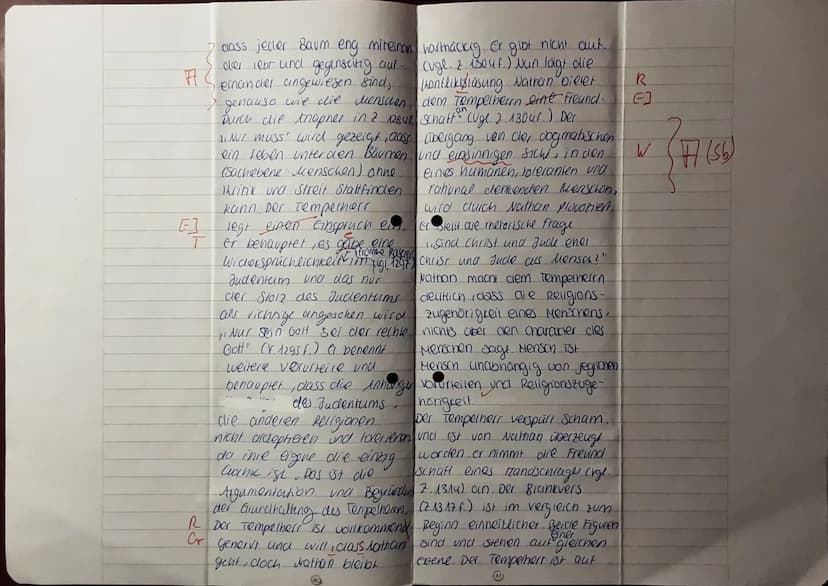 dass jeder Baum eng miteinan
der lebt und gegenseitig auf-
einander angewiesen sind,
A
genauso wie die Menschen.
Durch die Knapper in Z.
„Nur muss" wird gezeigt, dass
ein Leben unter den Bäumen
(Sachebene-Menschen) ohne
Krink und Streit Stattfinden
kann. Der Tempelherr
E]
legt einen Einspruch ein.
T
Er behauptet, es gäbe eine
Widersprüchlichkeit im
Judentum und das nur
der Stolz des Judentums
als richtige angesehen wird
„Nur sein Gott sei der rechte
Gott" (V. 1295f.) Er benennt
weitere Vorurteile und
behauptet, dass die Anhänger
des Judentums
die anderen Religionen
nicht akzeptieren und tolerieren
da ihre eigene die einzig
Wahre ist. Das ist die
Argumentation und Begründen
der Grundhaltung des Tempelherrn.
R
Der Tempelherr ist vollkommend
Gr
genervt und will, dass Nathan
geht, doch Nathan bleibt
hartnäckig. Er gibt nicht auf.
(vgl. Z. 130uf.) Nun folgt die
R
Konfliktlösung Nathan bietet
E]
dem Tempelherrn eine Freund-
schaft an (vgl. Z. 130uf.) Der
Übergang von der dogmatischen
W
und einsinnigen Sicht, in den
A (Sb)
eines humanen, toleranten und
rational denkenden Menschen,
wird durch Nathan provoziert.
Er stellt die rhetorische Frage
„Sind Christ und Jude eher
Christ und Jude als Mensch?"
Nathan macht dem Tempelherrn
deutlich, dass die Religions-
zugehörigkeit eines Menschens,
nichts über den Charakter des
Menschen sagt. Mensch ist
Mensch unabhängig von jeglichen
Vorurteilen und Religionszuge-
hörigkeit.
Der Tempelherr verspürt Scham
und ist von Nathan überzeugt
worden. er nimmt die Freund
schaft eines Handschlages (vgl.
Z. 1314) an. Der Blankvers
(Z. 1317f.) ist im vergleich zum
Beginn einheitlicher. Beide Figuren
sind und stehen auf einer gleichen
Ebene. Der Tempelherr ist auf